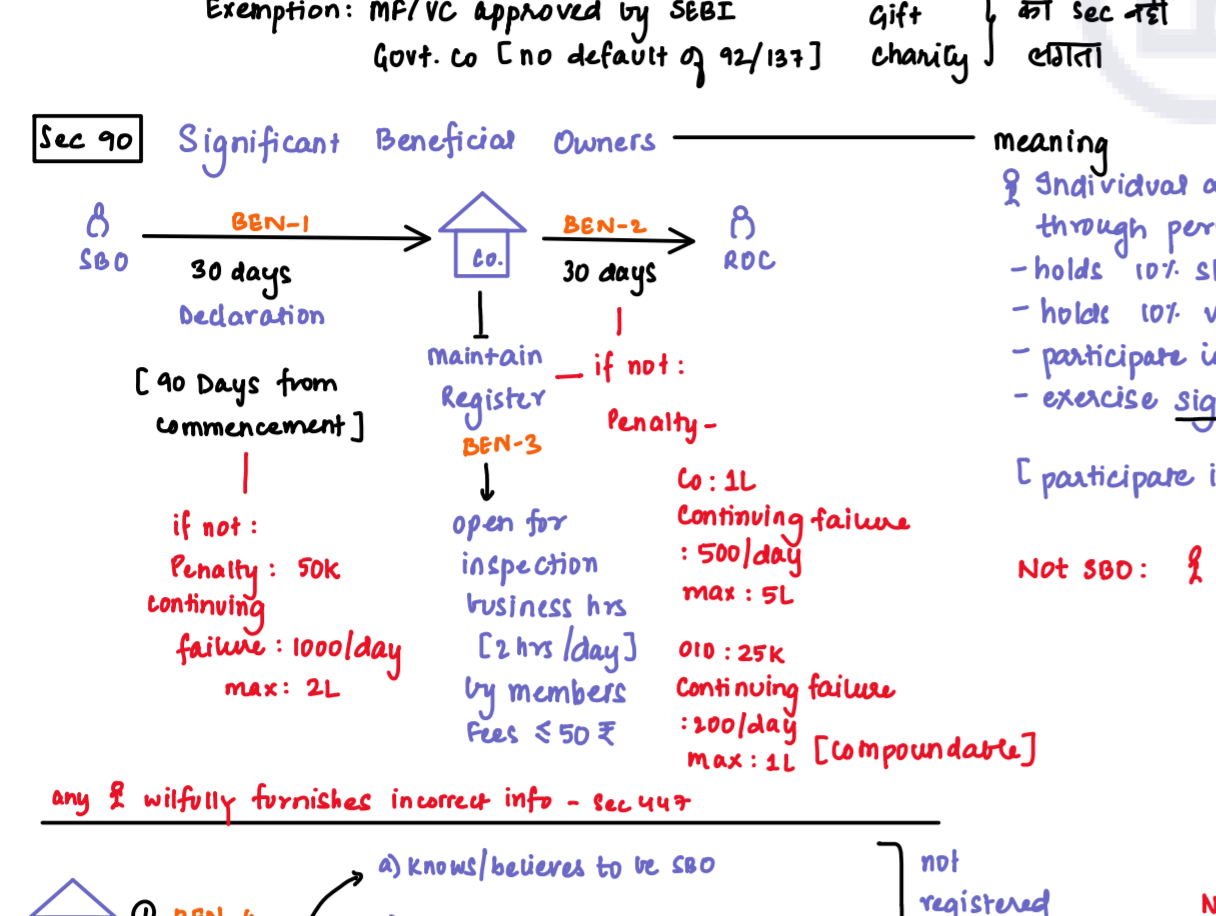 Exemption: MF/VC approved by SEBI
Govt. Co [no default of 92/137]
Gift
charity
का sec नही
लगता
Sec 90
Significant Beneficial Owners
meaning
SBO
BEN-1
30 days
Declaration
[90 Days from
commencement]
if not:
Penalty: 50K
continuing
failure: 1000/day
max: 2L
Co.
maintain
Register
BEN-3
open for
inspection
business hrs
[2 hrs/day]
by members
Fees ≤ 50 ₹
BEN-2
30 days
ROC
if not:
Penalty-
Co: 1L
Continuing failure
: 500/day
max: 5L
OID: 25K
Continuing failure
: 200/day
max: 1L [compoundable]
Individual
through
- holds 10%
- holds 10%
- participate
- exercise
[participate
Not SBO:
any wilfully furnishes incorrect info - Sec 447
a) Knows/believes to be SBO
not
registered